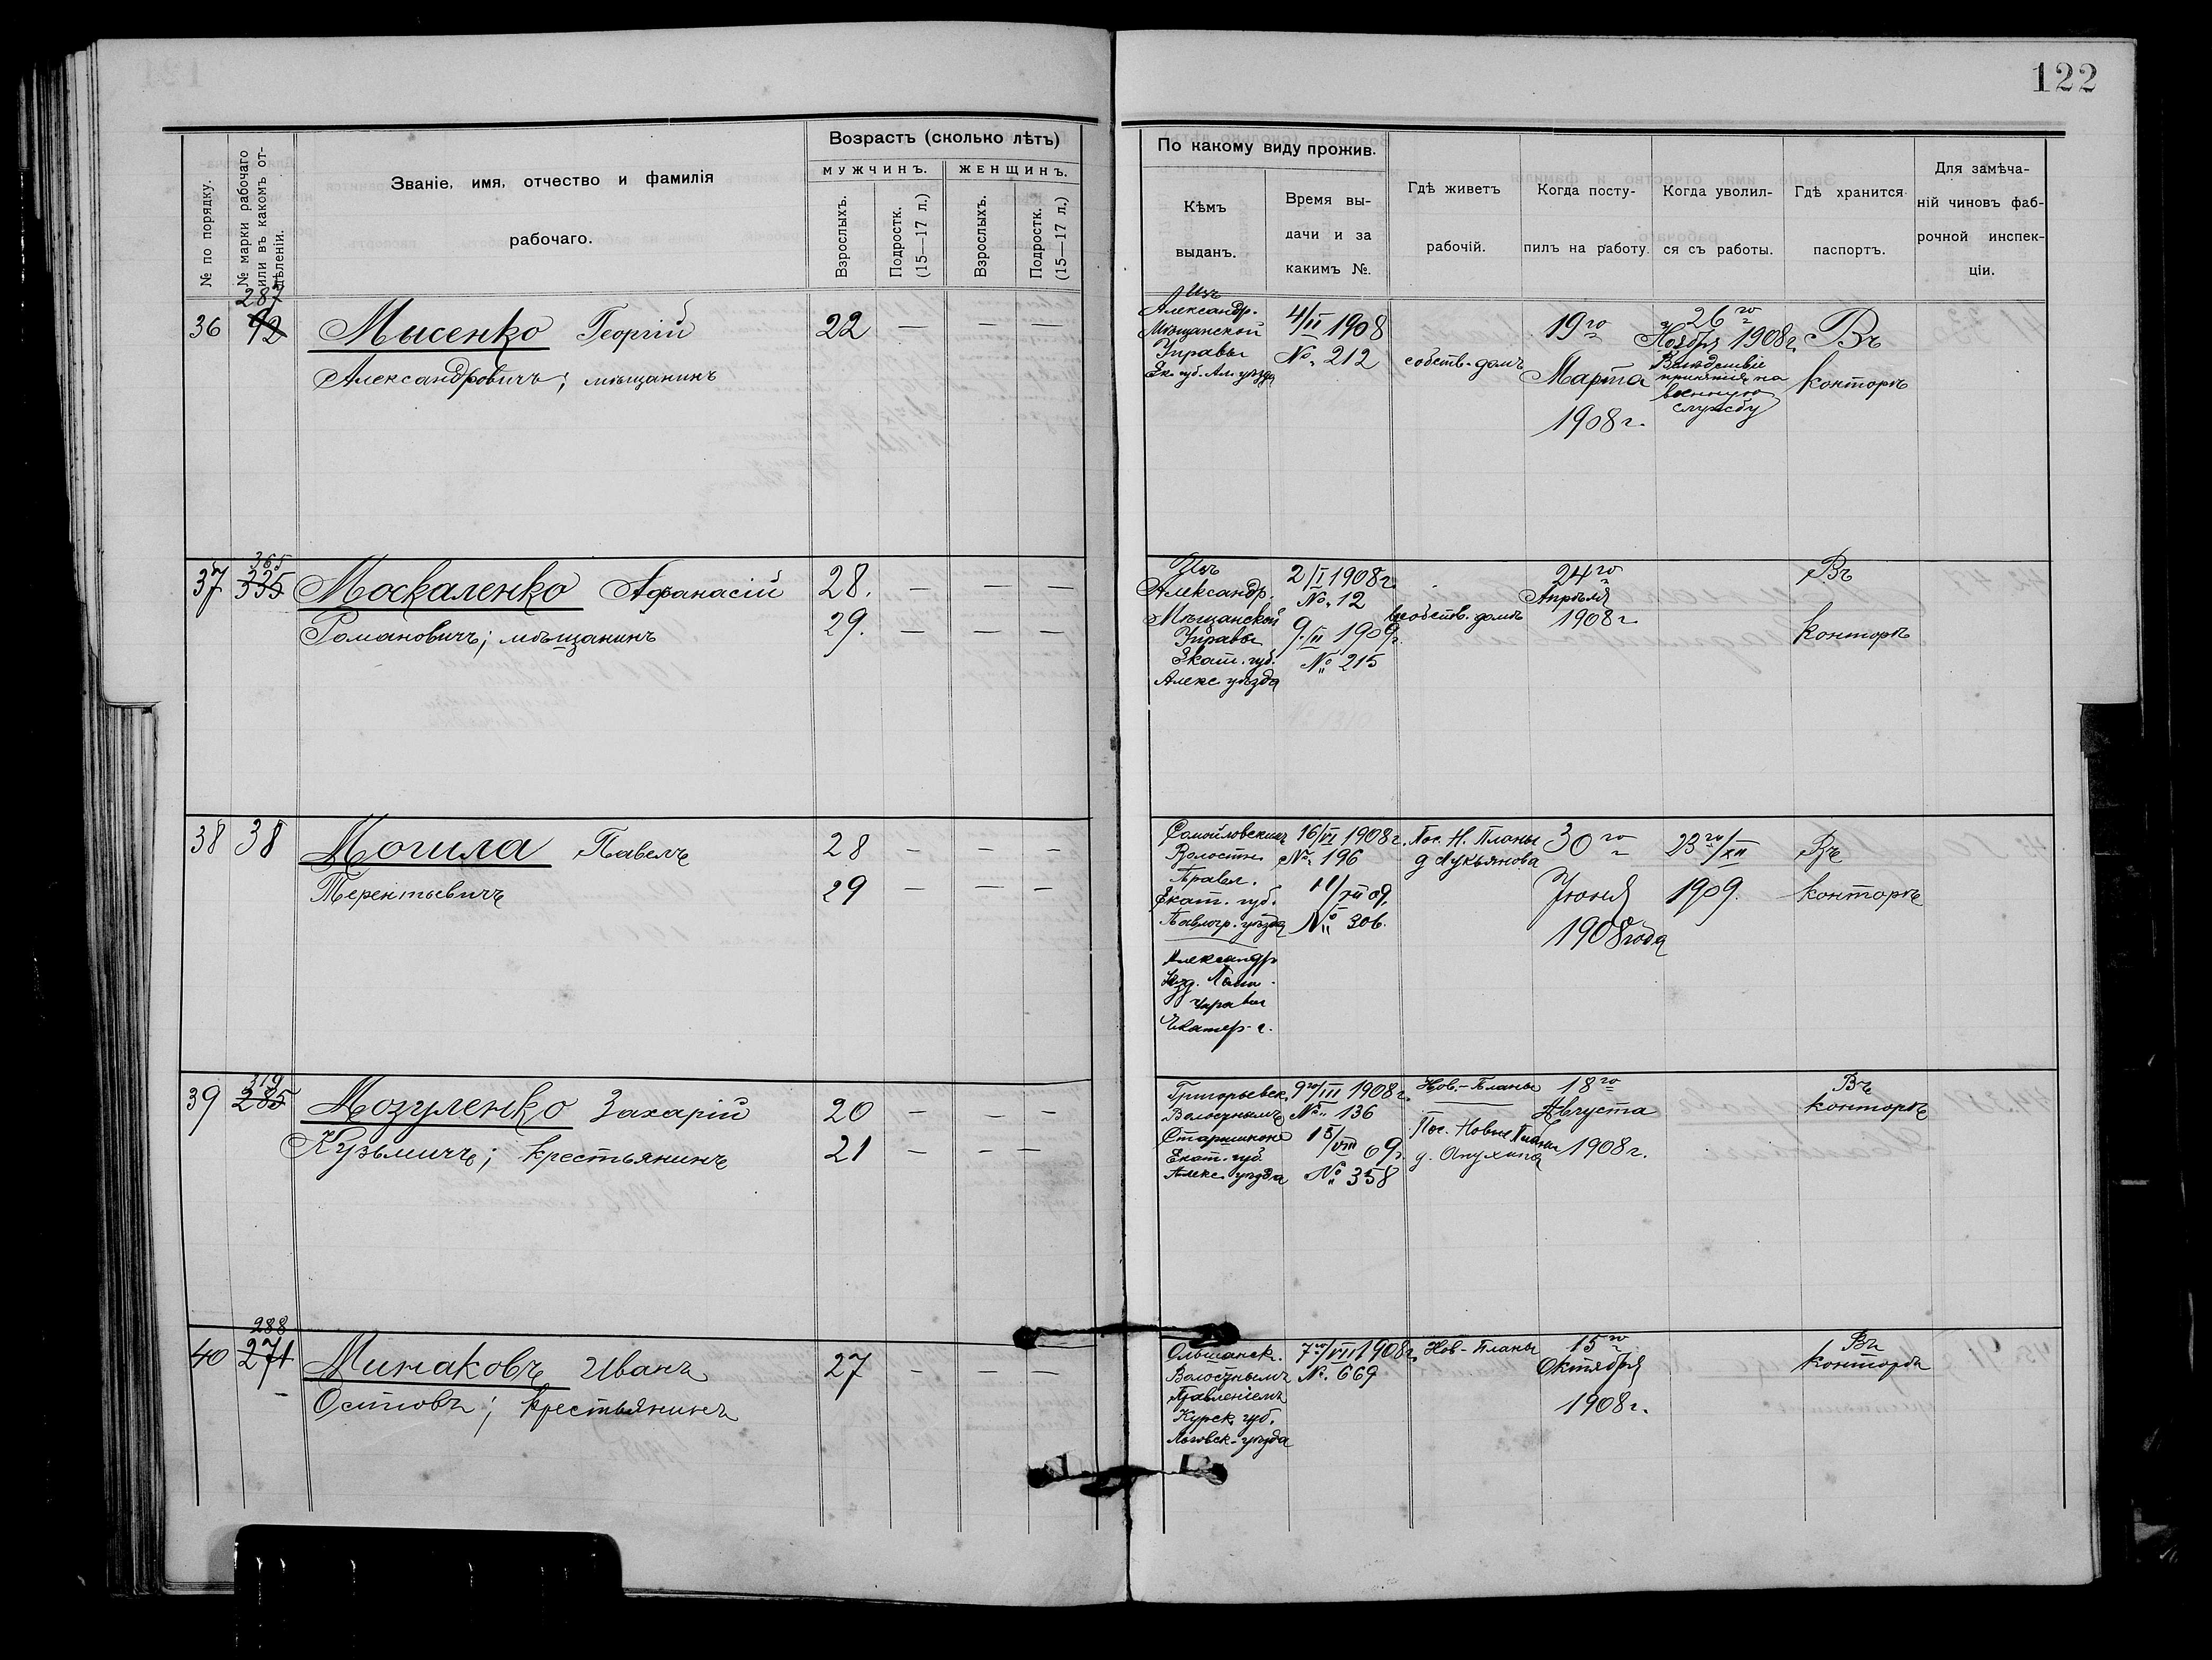 122
Возрастъ (сколько лѣтъ)
МУЖЧИНЪ.
ЖЕНЩИНЪ.
№ по порядку.
№ марки рабочаго
или въ какомъ от-
дѣленіи.
Званіе, имя, отчество и фамилія
рабочаго.
Взрослыхъ.
Подростк.
(15—17 л.)
Взрослыхъ.
Подростк.
(15—17 л.)
По какому виду прожив.
Кѣмъ
выданъ.
Время вы-
дачи и за
какимъ №.
Гдѣ живетъ
рабочій.
Когда посту-
пилъ на работу.
Когда уволил-
ся съ работы.
Гдѣ хранится
паспортъ.
Для замѣча-
ній чиновъ фаб-
рочной инспек-
ціи.
287
36
Мысенко Георгій 22 — — —
Александровичъ; мѣщанинъ
Изъ
Александр.
Мѣщанской
Управы
Ек. губ. Ал. уѣзда
4/II 1908
№ 212
собств. домъ
19го
Марта
1908 г.
26го
Ноября 1908 г.
Вслѣдствіе
принятія на
военную
службу
Въ
конторѣ
365
37 335 Москаленко Афанасій 28. — — —
Романовичъ; мѣщанинъ 29. — — —
Изъ
Александр.
Мѣщанской
Управы
Екат. губ.
Алекс уѣзда
2/I 1908 г
№ 12
9/II 1909 г.
№ 215
собств. домъ
24го
Апрѣля
1908 г
Въ
конторѣ
38 38 Могила Павелъ 28 — — —
Терентьевичъ 29 — — —
Самойловскимъ
Волостн.
Правл.
Екат. губ.
Павлогр. уѣзда
Александр
Управы
Екатер. г.
16/VI 1908 г.
№ 196
11/XII 09.
№ 306.
Пос. Н. Планы
д Лукьянова
30го
Іюня
1908 года
23го/XII
1909.
Въ
конторѣ
319
39 285 Мозуленко Захарій 20 — — —
Кузьмичъ; крестьянинъ 21 — — —
Григорьевск.
Волостнымъ
Старшиною
Екат. губ.
Алекс. уѣзда
9го/III 1908 г.
№ 136
/VIII 09 г.
№ 358
Нов.-Планы
Пос. Новые Планы
д. Апухина
18го
Августа
1908 г.
Въ
конторѣ
288
40 271 Минаковъ Иванъ 27 — — —
Осиповъ; крестьянинъ
Ольшанск.
Волостнымъ
Правленіемъ
Курск. губ.
Льговск. уѣзда
7го/VII 1908 г.
№ 669
Нов-Планы
15го
Октября
1908 г.
Въ
конторѣ